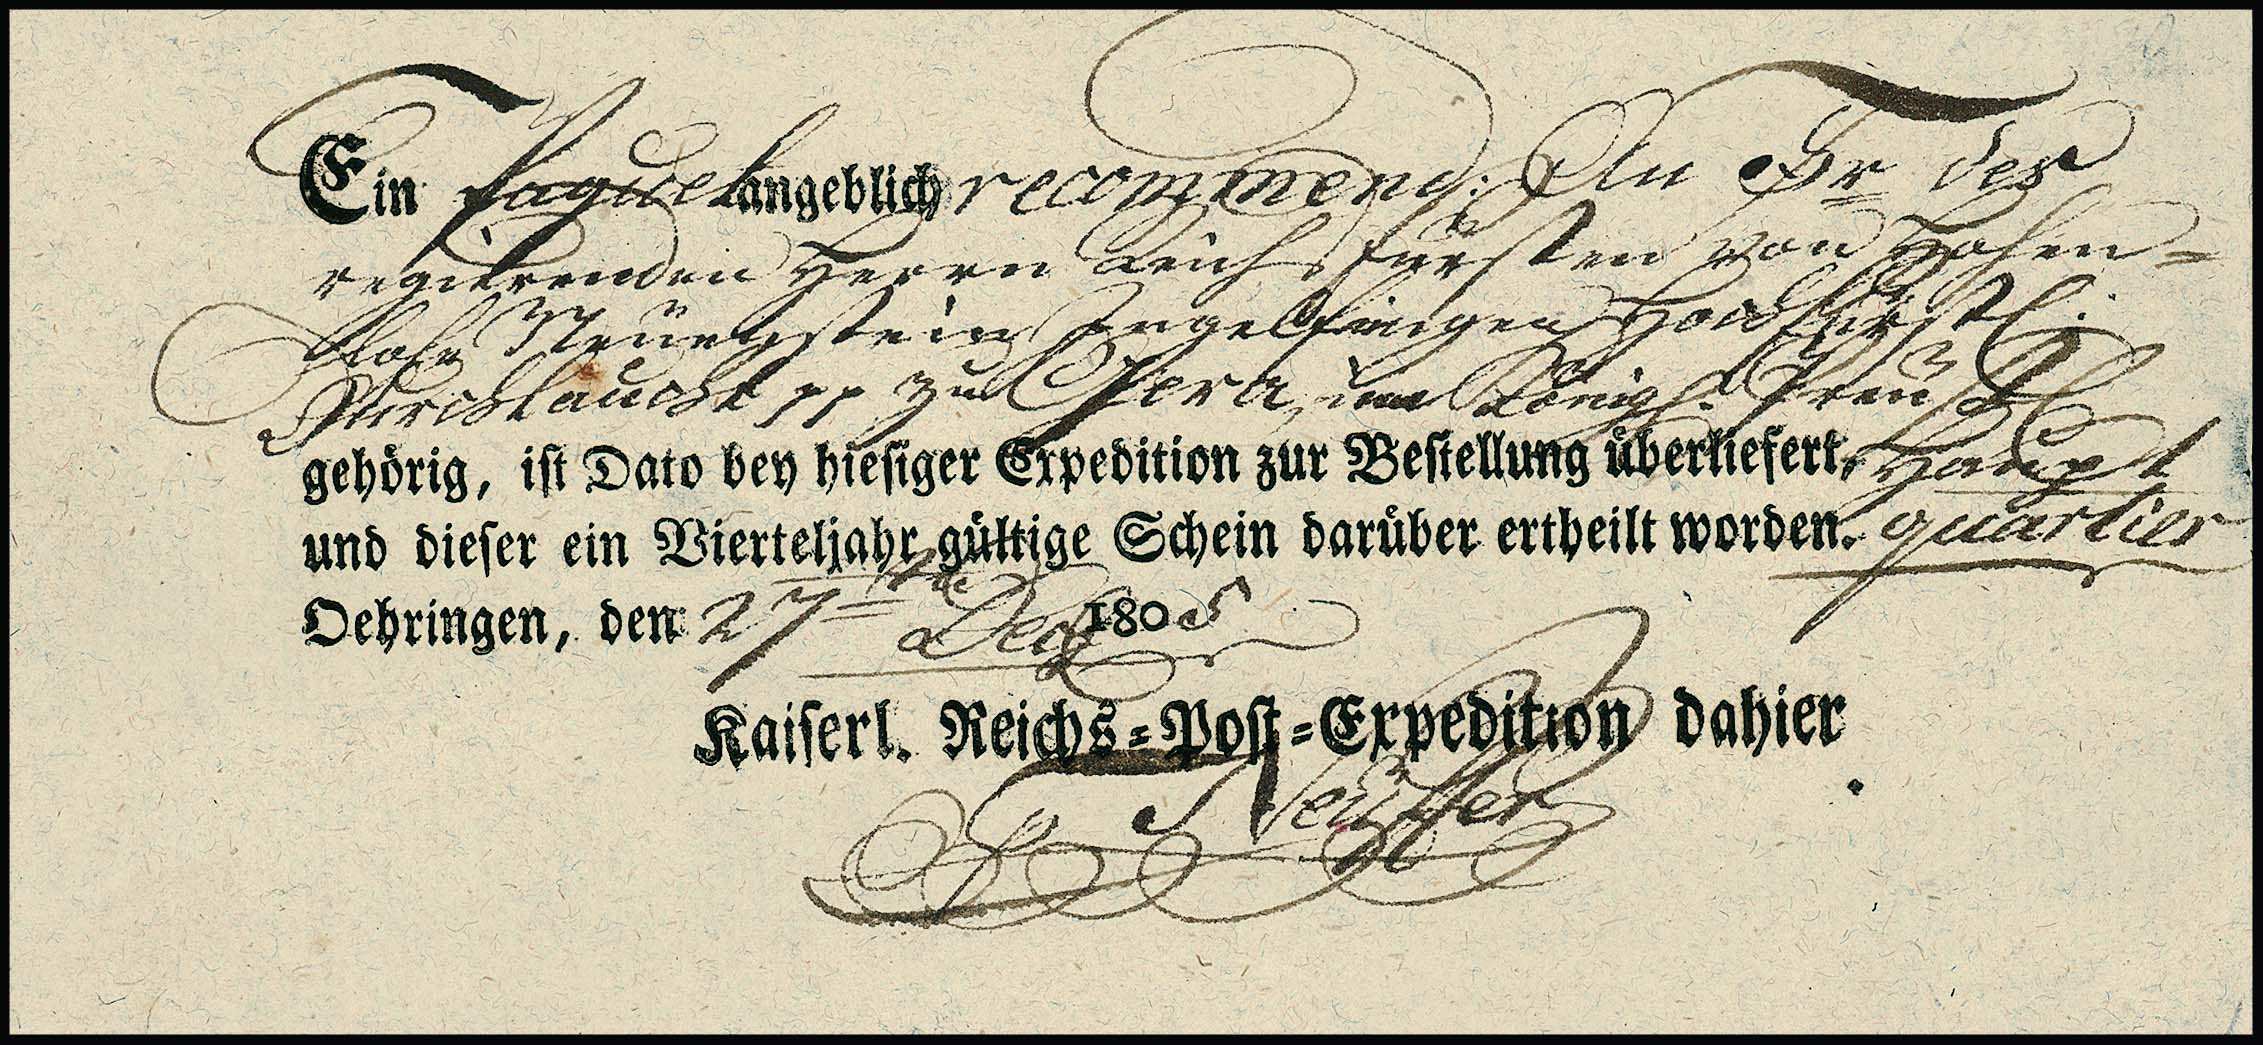 Ein Paquet angeblich recommend: An Sr des
regierenden Herrn Reichs Fürsten von Hohen=
lohe Neuenstein Ingelfingen Hochfürstl:
Durchlaucht pp zu Gera, im Königl. Preuß
gehörig, ist Dato bey hiesiger Expedition zur Bestellung überliefert, Haupt
und dieser ein Vierteljahr gültige Schein darüber ertheilt worden. quartier
Oehringen, den 27ten Dec 1805
Kaiserl. Reichs=Post=Expedition dahier